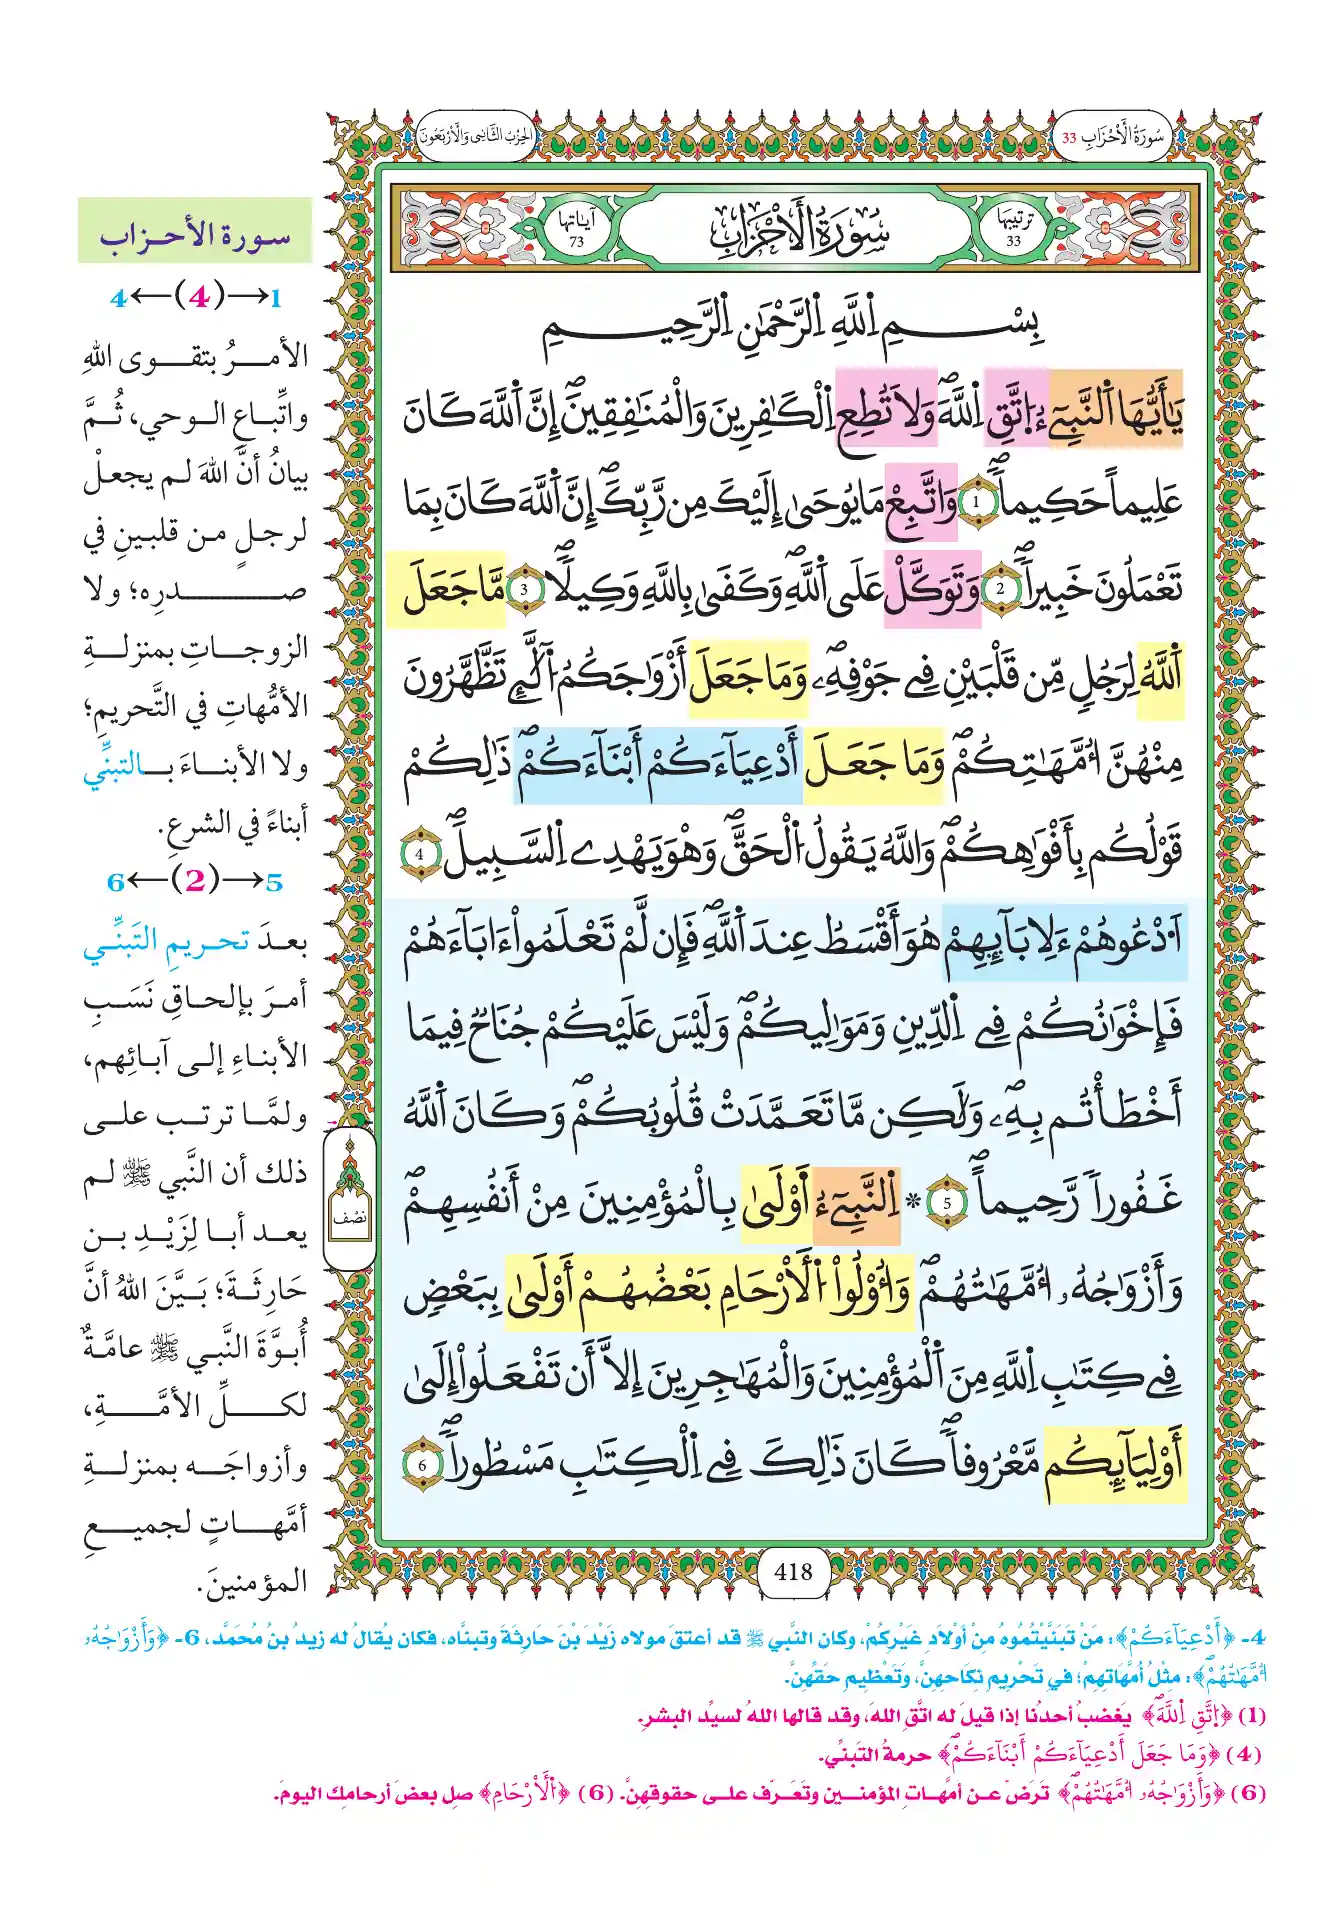 سُورَةُ الْأَحْزَابِ 33
الحِزْبُ الثَّانِي وَالْأَرْبَعُونَ
ترتيبها 33
سُورَةُ الْأَحْزَابِ
آياتها 73
بِسْمِ اِ۬للَّهِ اِ۬لرَّحْمَٰنِ اِ۬لرَّحِيمِ
يَٰأَيُّهَا اَ۬لنَّبِيٓءُ اُ۪تَّقِ اِ۬للَّهَۖ وَلَا تُطِعِ اِ۬لْكَٰفِرِينَ وَالْمُنَٰفِقِينَۖ إِنَّ اَ۬للَّهَ كَانَ
عَلِيماً حَكِيماًۖ 1 وَاتَّبِعْ مَا يُوحَىٰ إِلَيْكَ مِن رَّبِّكَۖ إِنَّ اَ۬للَّهَ كَانَ بِمَا
تَعْمَلُونَ خَبِيراًۖ 2 وَتَوَكَّلْ عَلَى اَ۬للَّهِۖ وَكَفَىٰ بِاللَّهِ وَكِيلًاۖ 3 مَّا جَعَلَ
اَ۬للَّهُ لِرَجُلٍ مِّن قَلْبَيْنِ فِے جَوْفِهِۦۖ وَمَا جَعَلَ أَزْوَٰجَكُمُ اُ۬لَّٰٓـِٔے تَظَّهَّرُونَ
مِنْهُنَّ أُمَّهَٰتِكُمْۖ وَمَا جَعَلَ أَدْعِيَآءَكُمْ أَبْنَآءَكُمْۖ ذَٰلِكُمْ
قَوْلُكُم بِأَفْوَٰهِكُمْۖ وَاللَّهُ يَقُولُ اُ۬لْحَقَّۖ وَهْوَ يَهْدِے اِ۬لسَّبِيلَۖ 4
اَ۟دْعُوهُمْ ءَلِابَآئِهِمْ هُوَ أَقْسَطُ عِندَ اَ۬للَّهِۖ فَإِن لَّمْ تَعْلَمُواْ ءَابَآءَهُمْ
فَإِخْوَٰنُكُمْ فِے اِ۬لدِّينِ وَمَوَٰلِيكُمْۖ وَلَيْسَ عَلَيْكُمْ جُنَاحٌ فِيمَا
أَخْطَأْتُم بِهِۦۖ وَلَٰكِن مَّا تَعَمَّدَتْ قُلُوبُكُمْۖ وَكَانَ اَ۬للَّهُ
غَفُوراً رَّحِيماًۖ 5 * اِ۬لنَّبِيٓءُ أَوْلَىٰ بِالْمُؤْمِنِينَ مِنْ أَنفُسِهِمْۖ
وَأَزْوَٰجُهُۥ أُمَّهَٰتُهُمْۖ وَأُوْلُواْ اُ۬لْأَرْحَامِ بَعْضُهُمْ أَوْلَىٰ بِبَعْضٍ
فِے كِتَٰبِ اِ۬للَّهِ مِنَ اَ۬لْمُؤْمِنِينَ وَالْمُهَٰجِرِينَ إِلَّا أَن تَفْعَلُواْ إِلَىٰ
أَوْلِيَآئِكُم مَّعْرُوفاًۖ كَانَ ذَٰلِكَ فِے اِ۬لْكِتَٰبِ مَسْطُوراًۖ 6
نصف
418
سورة الأحزاب
1→(4)←4
الأمرُ بتقوى اللهِ
واتِّباعِ الوحي، ثُمَّ
بيانُ أنَّ اللهَ لم يجعلْ
لرجلٍ من قلبينِ في
صدرِه؛ ولا
الزوجاتِ بمنزلةِ
الأمُّهاتِ في التَّحريمِ؛
ولا الأبناءَ بالتبنِّي
أبناءً في الشرعِ.
5→(2)←6
بعدَ تحريمِ التَبنِّي
أمرَ بإلحاقِ نَسَبِ
الأبناءِ إلى آبائِهم،
ولمَّا ترتب على
ذلك أن النَّبي ﷺ لم
يعد أبا لِزَيْدِ بن
حَارِثَةَ؛ بَيَّنَ اللهُ أنَّ
أُبوَّةَ النَّبي ﷺ عامَّةٌ
لكلِّ الأمَّةِ،
وأزواجَه بمنزلةِ
أمَّهاتٍ لجميعِ
المؤمنينَ.
4- ﴿أَدْعِيَآءَكُمْ﴾: مَنْ تَبَنَّيْتُمُوهُ مِنْ أَوْلَادِ غَيْرِكُمْ، وكان النَّبي ﷺ قد أعتقَ مولاه زَيْدَ بْنَ حَارِثَةَ وتبنَّاه، فكان يُقالُ له زيدُ بنُ مُحَمَّد، 6- ﴿وَأَزْوَٰجُهُۥ
أُمَّهَٰتُهُمْۖ﴾: مِثْلُ أُمَّهَاتِهِمْ؛ في تَحْرِيمِ نِكَاحِهِنَّ، وَتَعْظِيمِ حَقِّهِنَّ.
(1) ﴿اُ۪تَّقِ اِ۬للَّهَۖ﴾ يَغضبُ أحدُنا إذا قيلَ له اتَّقِ اللهَ، وقد قالها اللهُ لسيِّد البشرِ.
(4) ﴿وَمَا جَعَلَ أَدْعِيَآءَكُمْ أَبْنَآءَكُمْۖ﴾ حرمةُ التَبنِّي.
(6) ﴿وَأَزْوَٰجُهُۥ أُمَّهَٰتُهُمْۖ﴾ تَرَضّ عن أمَّهاتِ المؤمنين وتَعَرّف على حقوقِهِنَّ. (6) ﴿اُ۬لْأَرْحَامِ﴾ صِل بعضَ أرحامِك اليومَ.